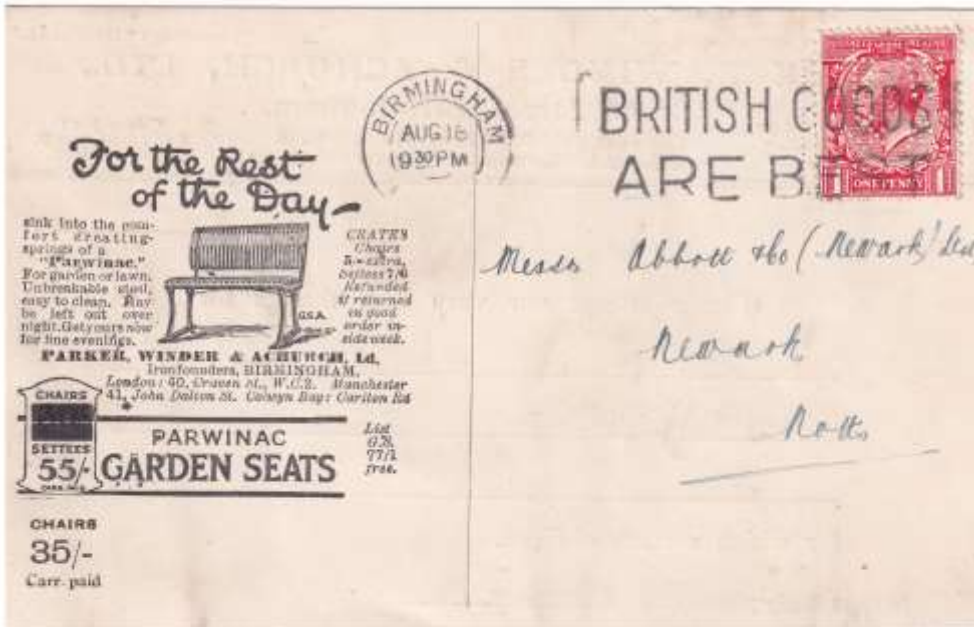 BIRMINGHAM
AUG 18
9 30 PM
BRITISH GOODS
ARE BEST
1 ONE PENNY 1
For the Rest
of the Day—
sink into the com-
fort creating-
springs of a
"Parwinac."
For garden or lawn.
Unbreakable steel,
easy to clean. May
be left out over
night. Get yours now
for fine evenings.
CRATES
Chairs
5/- extra,
Settees 7/6
Refunded
if returned
in good
order in-
side week.
G.S.A.
PARKER, WINDER & ACHURCH, Ld.
Ironfounders, BIRMINGHAM.
London: 60, Craven St., W.C.2. Manchester
41, John Dalton St. Colwyn Bay: Carlton Rd
CHAIRS
SETTEES
55/-
PARWINAC
GARDEN SEATS
List
G.S.
77/1
free.
CHAIRS
35/-
Carr. paid
Messrs Abbott & Co (Newark) Ltd
Newark
Notts